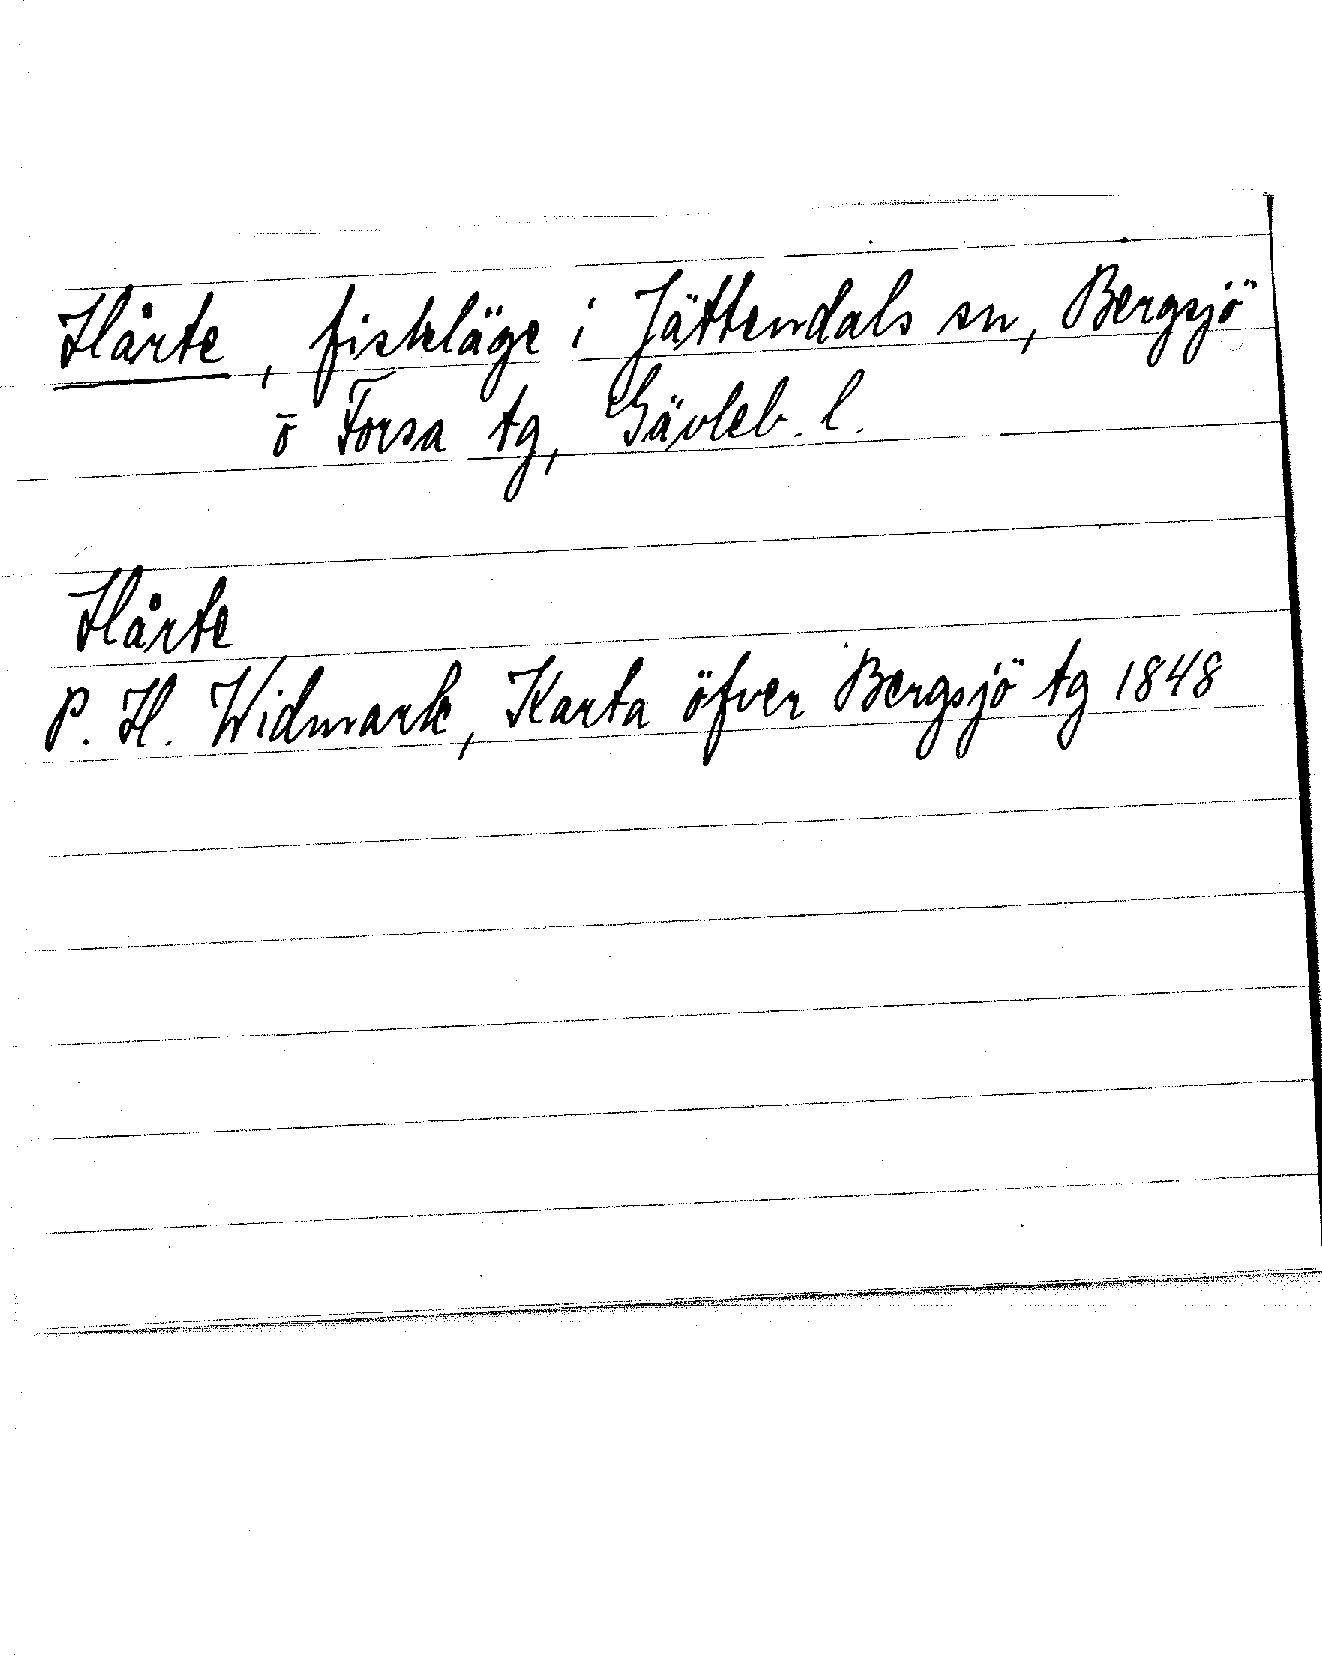 Hårte, fiskläge i Jättendals sn, Bergsjö
o Forsa tg, Gävleb. l.
Hårte
P. H. Widmark, Karta öfver Bergsjö tg 1848